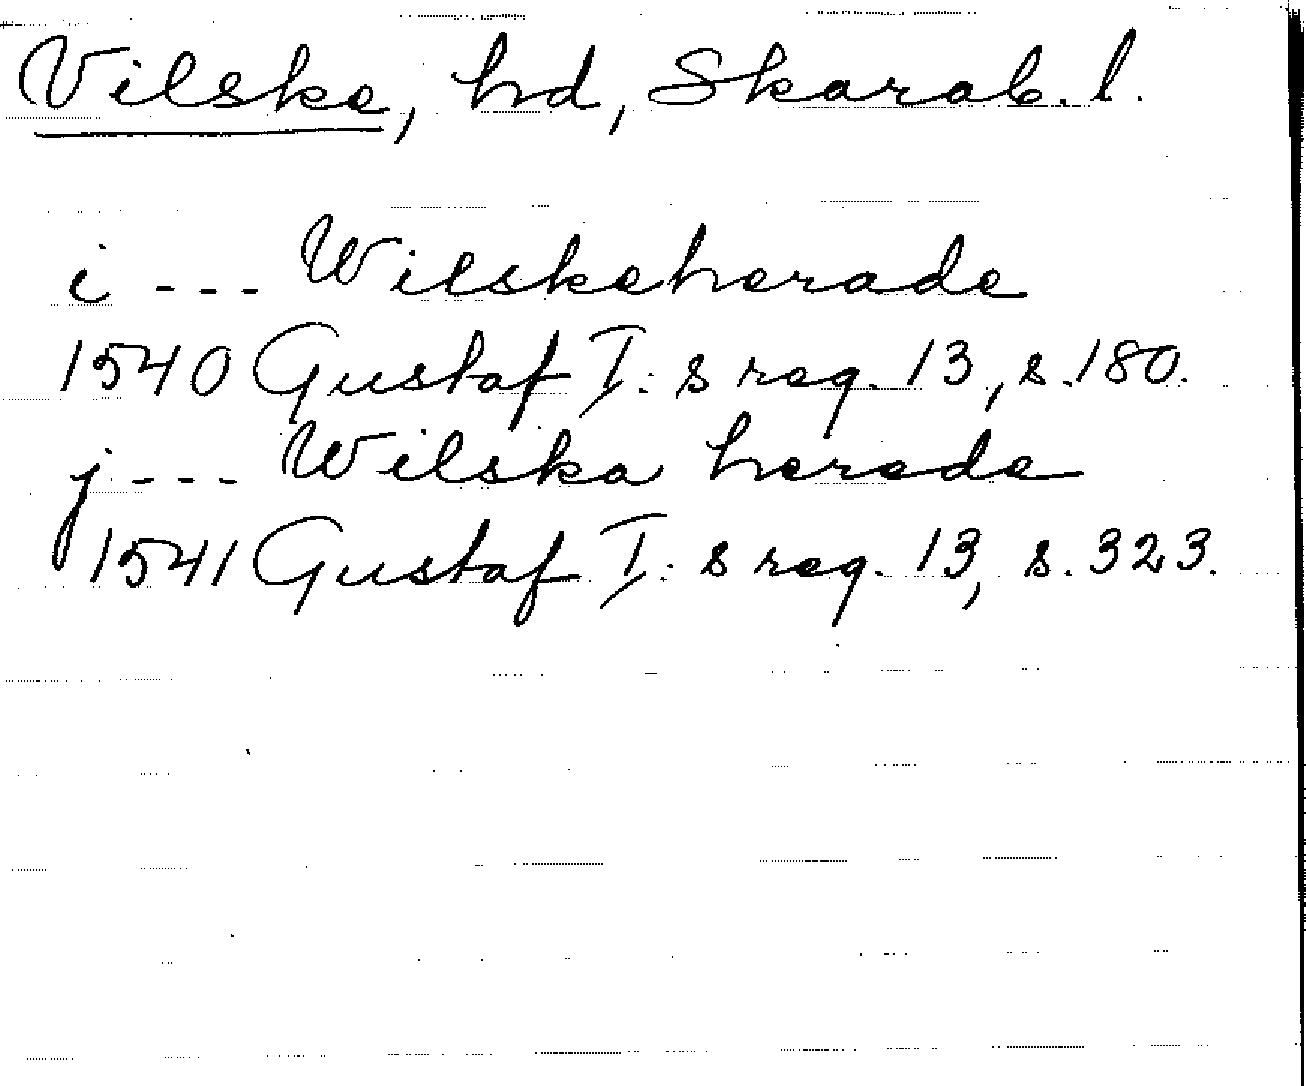 Vilske, hd, Skarab. l.
i --- Wilskeherade
1540 Gustaf I: s reg. 13, s. 180.
j --- Wilska herede
1541 Gustaf I: s reg. 13, s. 323.